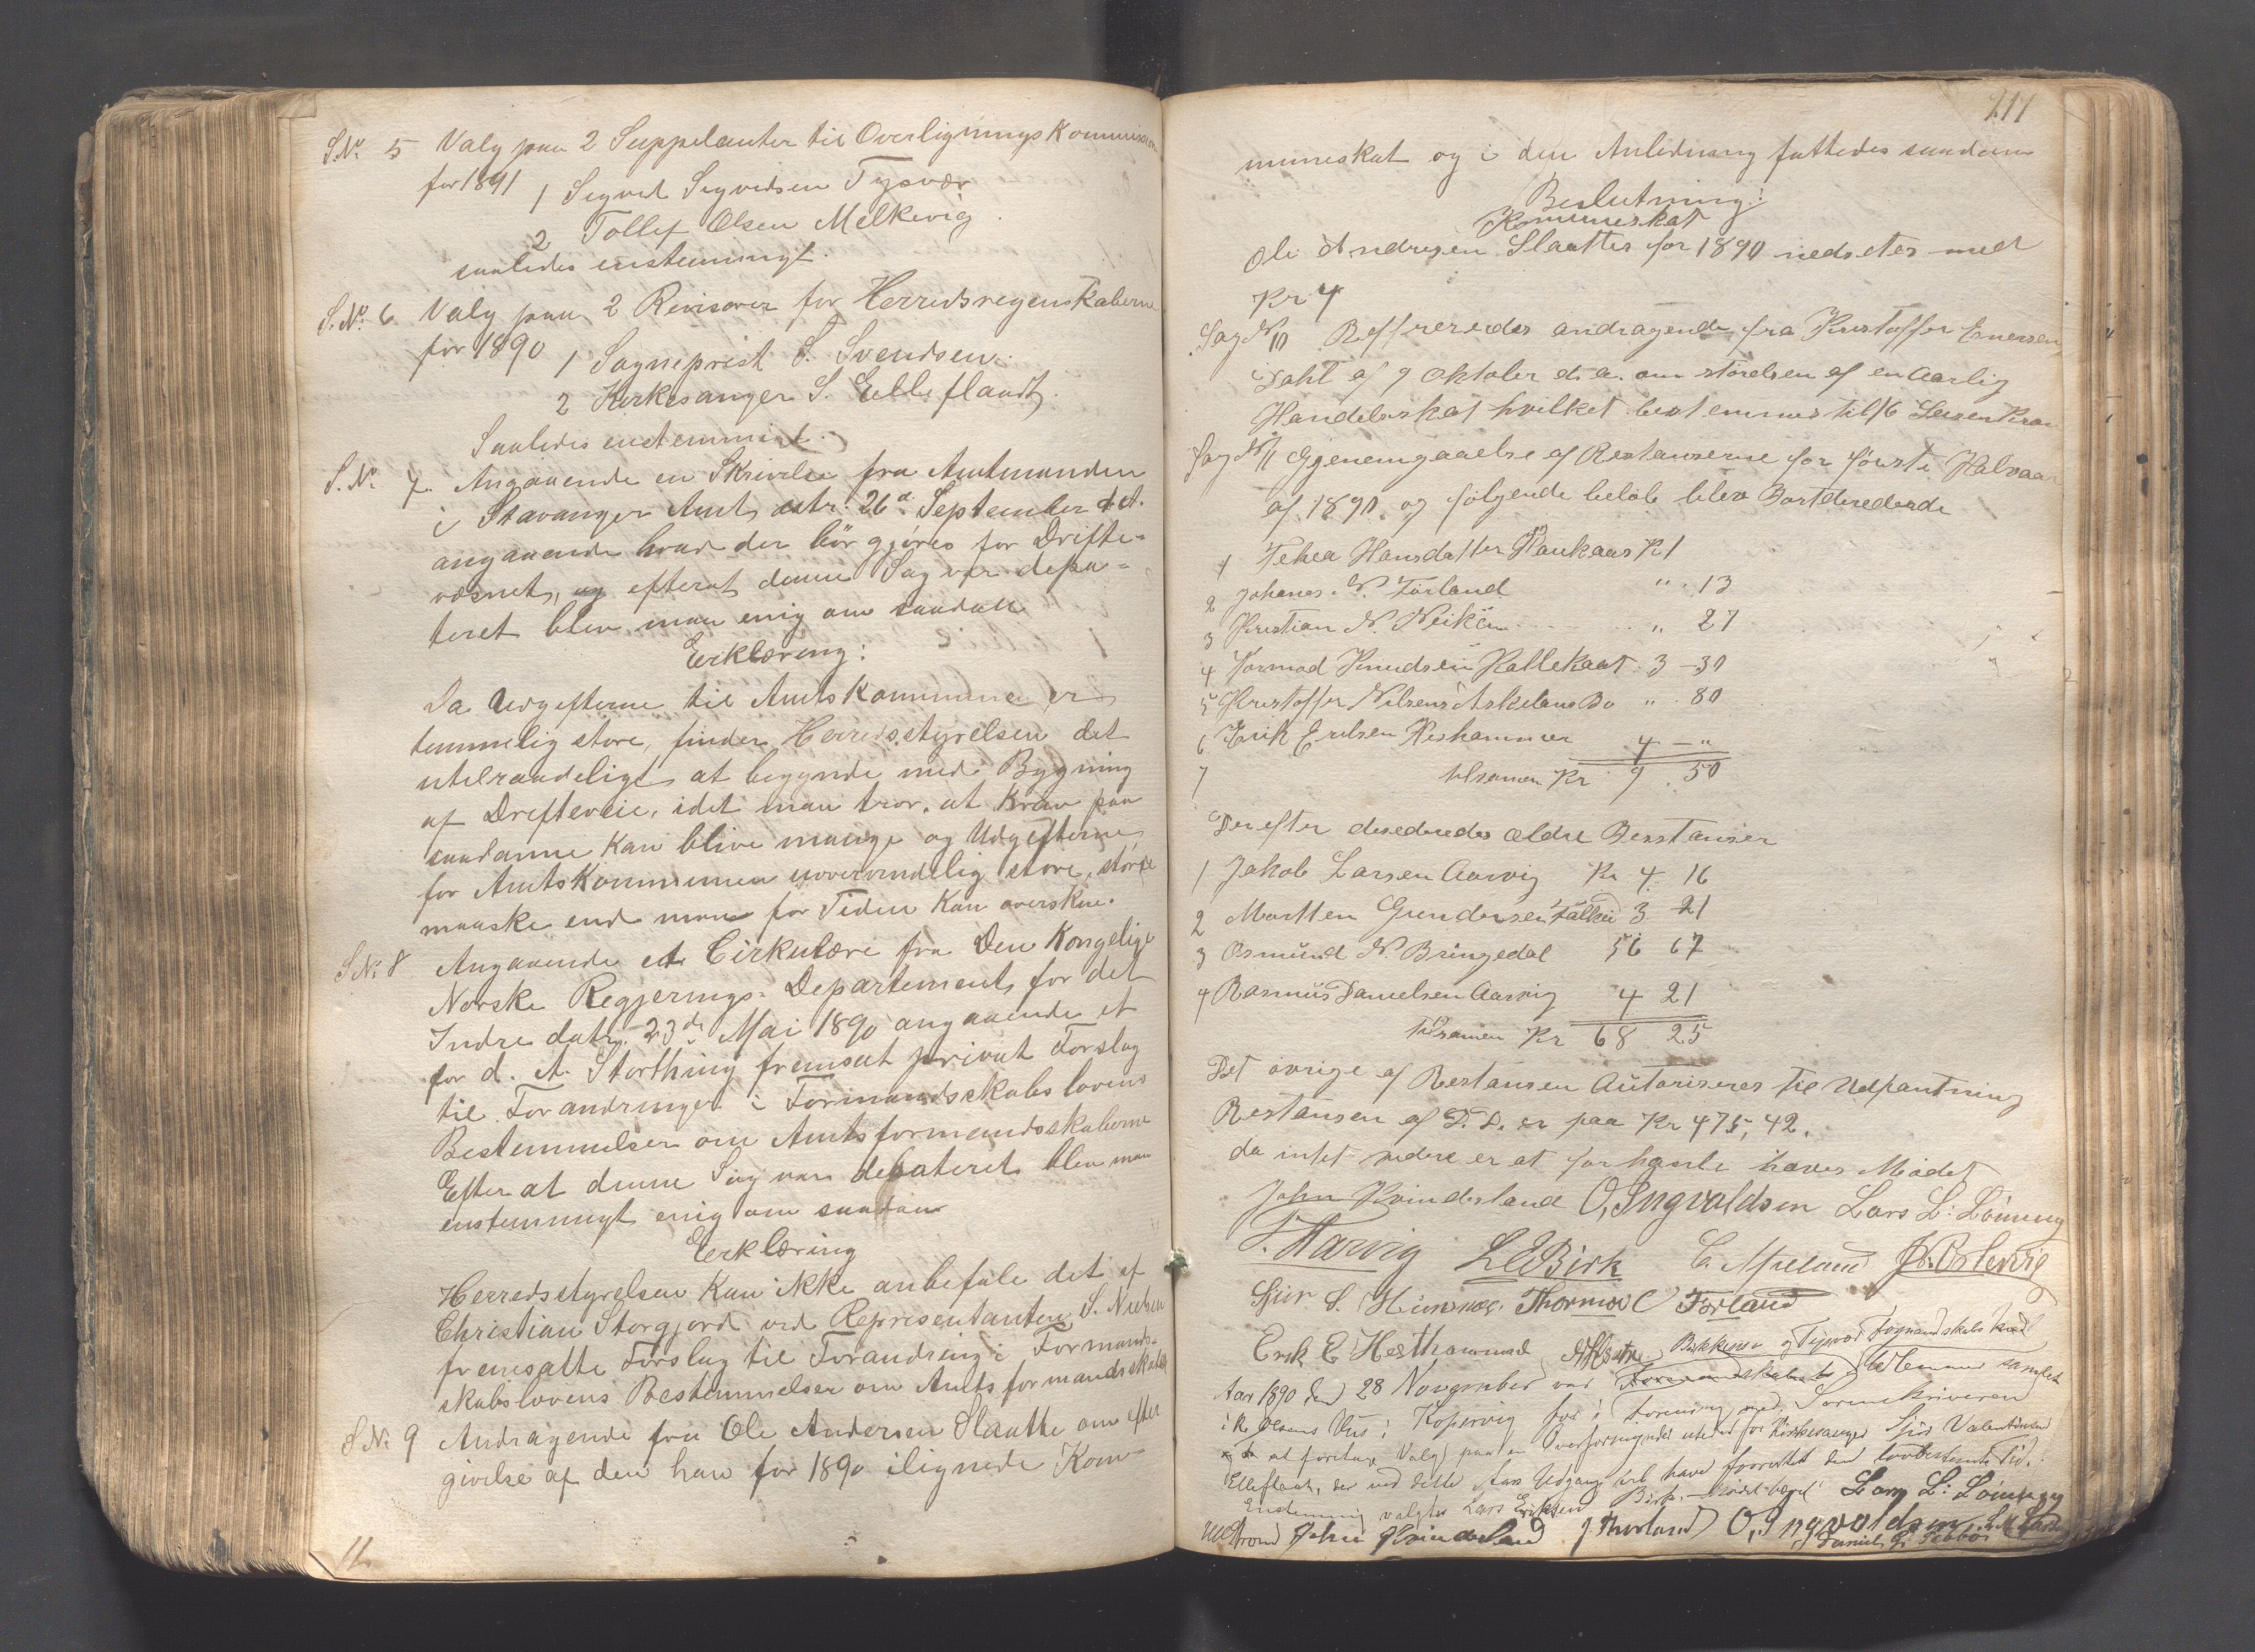 S.No. 5 Valg paa 2 Suppelanter til Overligningskommission
for 1891 1 Sigvart Sigvardsen Tysvær
2 Tollef Olsen Melkevig
saaledes enstemmigt.
S.No. 6 Valg paa 2 Revisorer for Herredsregenskaberne
for 1890 1 Sogneprest S. Svendsen.
2 Kirkesanger S. Elleflaadt.
Saaledes enstemmigt.
S.No. 7. Angaaende en Skrivelse fra Amtmanden
i Stavanger Amt, datr. 26de September d.A.
angaaende hvad der bör gjöres for Drifte-
væsnet, og efterat denne Sag var depa-
teret blev man enig om saadan
Erklæring:
Da Udgifterne til Amtskommunen er
temmelig store, finder Herredsstyrelsen det
utilraadeligt at begynde med Bygning
af Drifteveie, idet man tror, at Krav paa
saadanne kan blive mange og Udgifterne
for Amtskommunen uovervindelig store, störe
maaske end man for Tiden kan overskue.
S.No. 8 Angaaende et Cirkulære fra Den Kongelige
Norske Regjerings-Departement for det
Indre datr. 23de Mai 1890 angaaende et
for d. A. Storthing fremsat privat Forslag
til Forandringer i Formandsskabslovens
Bestemmelser om Amtsformandsskaberne
Efter at denne Sag var debateret blev man
enstemmigt enig om saadan
Erklæring
Herredsstyrelsen kan ikke anbefale det af
Christian Storgjord ved Representanten S. Nielsen
fremsatte Forslag til Forandring i Formands-
skabslovens Bestemmelser om Amtsformandsskaber
S No 9 Andragende fra Ole Andersen Slaatte om efter
givelse af den ham for 1890 ilignede Kom-
211
muneskat og i den Anledning fattedes saadan
Beslutning:
Kommuneskat
Ole Andresen Slaatter for 1890 nedsettes med
Kr 4
Sag No 10 Reffereredes andragende fra Kristoffer Enersen
Dahl af 9 Oktober d.a. om störelsen af en Aarlig
Handelsskat hvilket bestemmes til 16 Sexsen Kroner
Sag No 11 Gjenemgaaelse af Restanserne for förste Halvaar
af 1890. og fölgende belöb blev Bortdesederede
1 Tekea Hansdatter Haukaas Kr 1
2 Johanes N. Förland " . 13
3 Kristian N. Neikën . . . . " 27
4 Tormod Knudsen Kallekaat 3 – 30
5 Kristoffer Nilsens Askelans Bo " . 80
6 Erik Erelsen Heshammer 4 – "
7 tilsamen Kr 9 . 50
Derefter desederedes ældre Resstanser
1 Jakob Larsen Aarvig Kr 4. 16
2 Mortten Gundersen Falkei 3 21
3 Osmund N. Bringedal 56 67
4 Rasmus Danielsen Aarvig 4 21
Tilsamen Kr 68 25
Det övrige af Restansen Autoriseres til Udpantning
Restansen af D.D. er paa Kr 475,42.
da intet videre er at forhanle haves Mödet
John Kvindesland O. Ingvaldsen Lars L: Löining
T. Aarvig L E Birk C. Myeland
Sjur S. Thormod Forland
Erik E Hesthammer Bokkens og Tysvær Formandskabs
Aar 1890 den 28 November var Formandskabets Medlemmer samlet
i K Olsens Hus i Kopervig for i Forening med Sorenskriveren
at foretage Valg paa en Overformynder istedet for Kirkesanger Sjur Valentinsen
Elleflaat, der ved dette Aars Udgang vil have forrettet den lovbestemte Tid.
Enstemmig valgtes Lars Eriksen Birk. Mödet hævet Lars L: Löining
John Kvindesland J Thorland O. Ingvaldsen